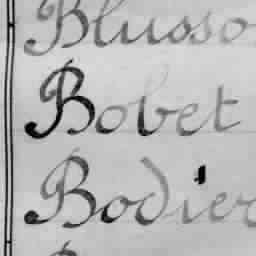 Blusso
Bobet
Bodier